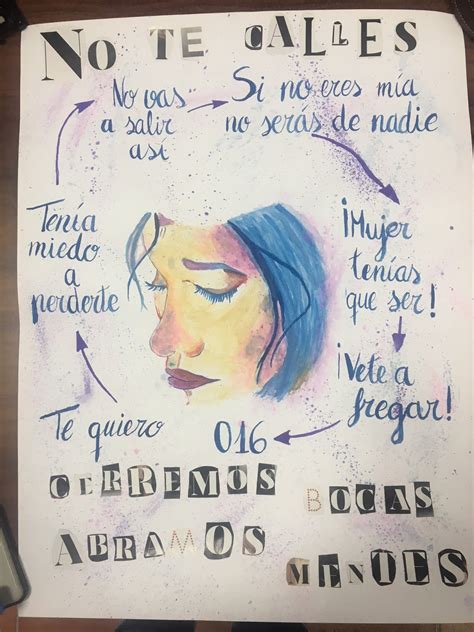 NO TE CALLES
No vas
a salir
así
Si no eres mía
no serás de nadie
¡Mujer
tenías
que ser!
¡Vete a
fregar!
016
Te quiero
Tenía
miedo
a
perderte
CERREMOS BOCAS
ABRAMOS MENTES